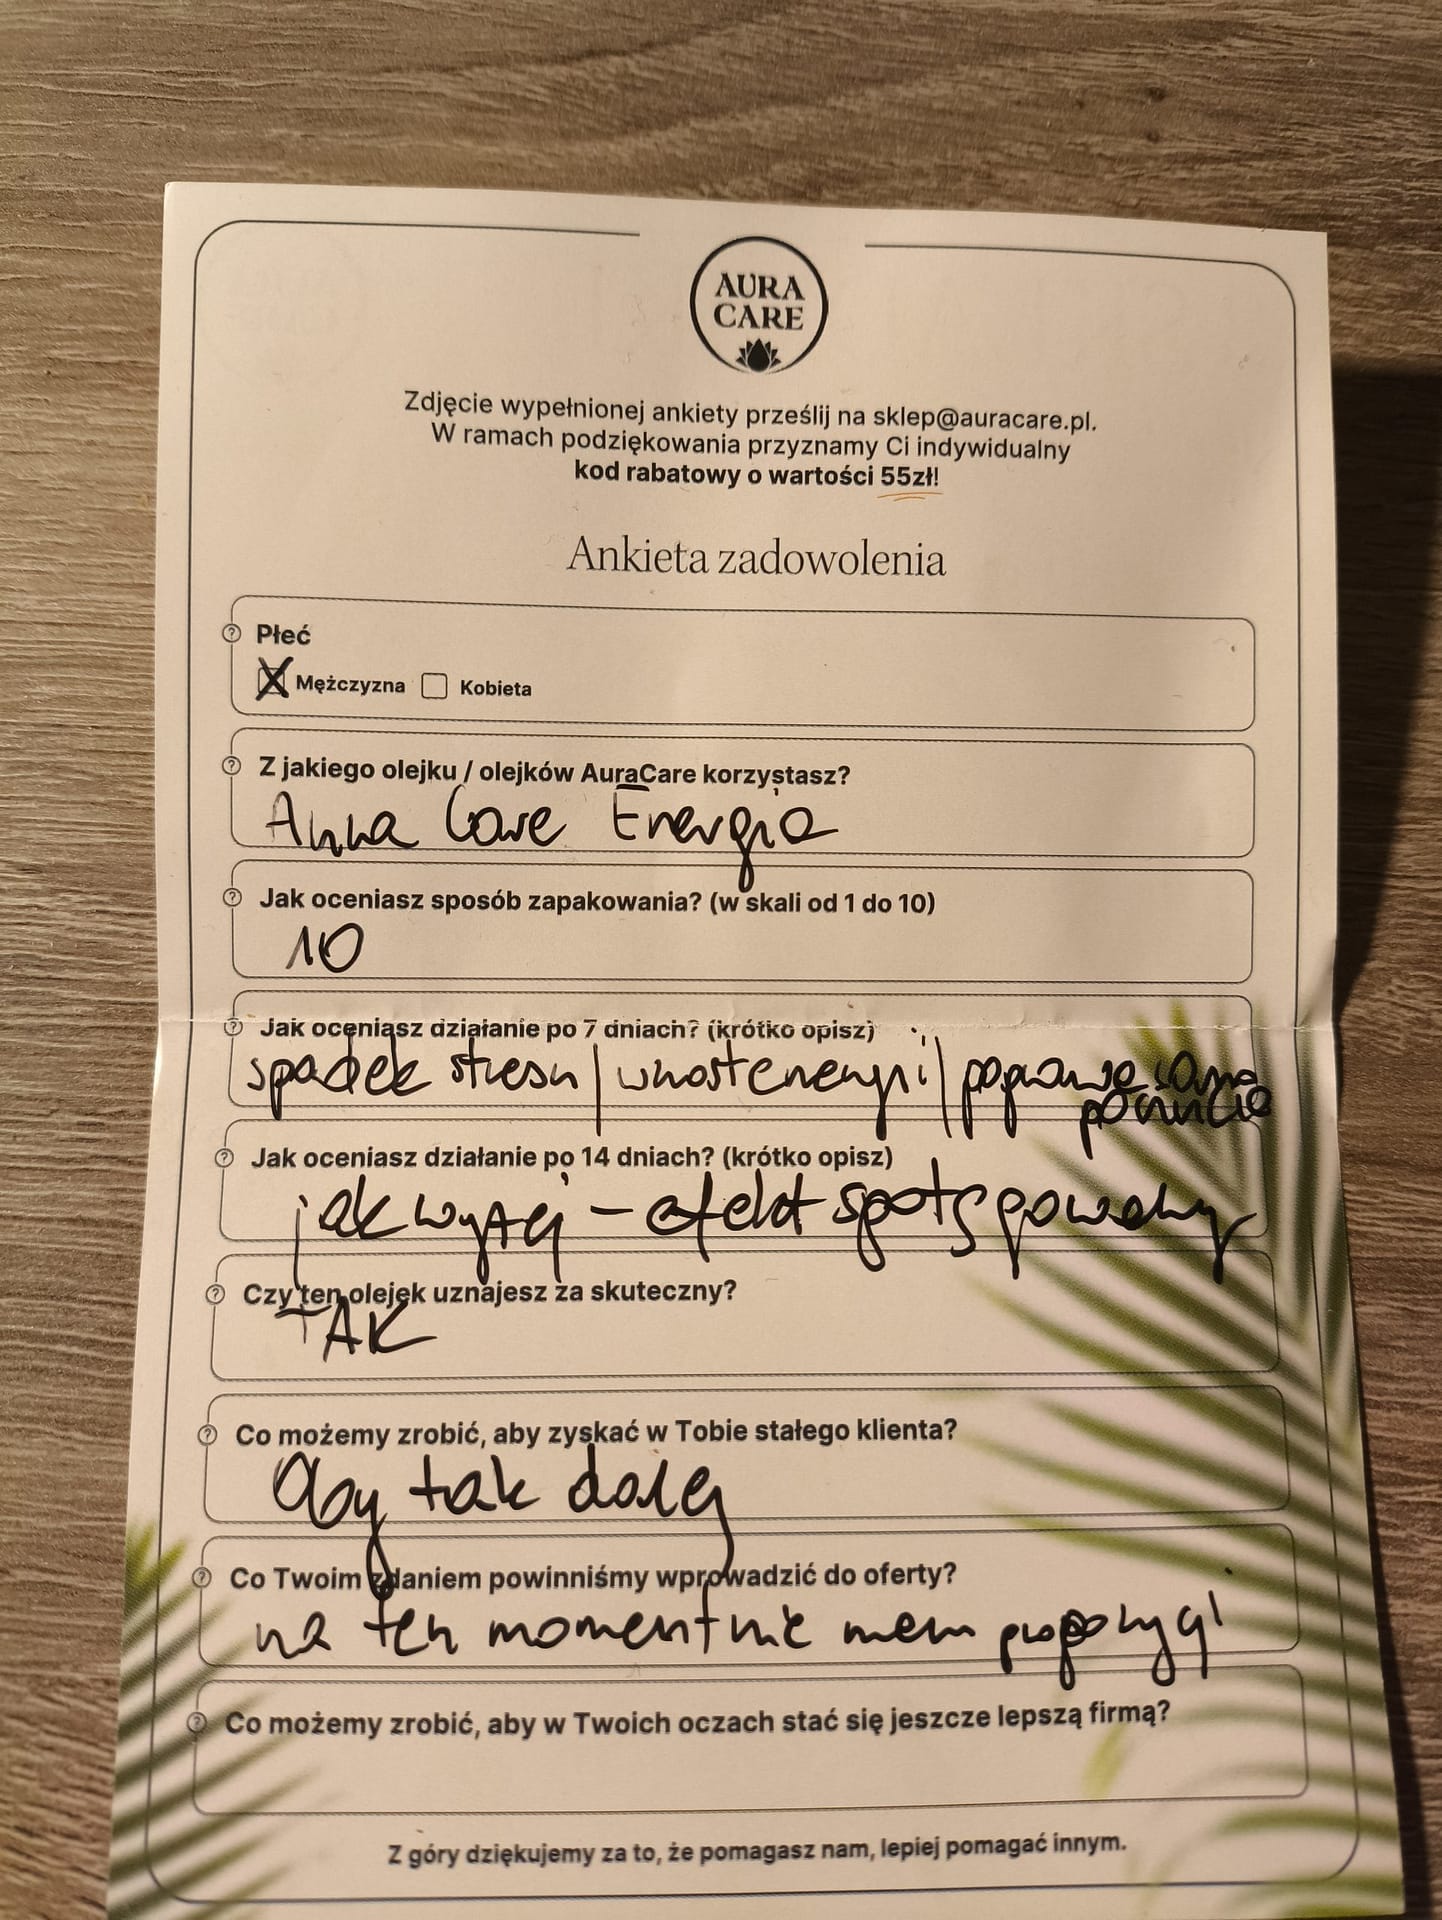 AURA
CARE
Zdjęcie wypełnionej ankiety prześlij na sklep@auracare.pl.
W ramach podziękowania przyznamy Ci indywidualny
kod rabatowy o wartości 55zł!
Ankieta zadowolenia
Płeć
X Mężczyzna Kobieta
Z jakiego olejku / olejków AuraCare korzystasz?
Care Energia
Jak oceniasz sposób zapakowania? (w skali od 1 do 10)
10
Jak oceniasz działanie po 7 dniach? (krótko opisz)
spadek stresu | wzrost energii | poprawa samo
poczucia
Jak oceniasz działanie po 14 dniach? (krótko opisz)
jak wyżej - efekt spotęgowany
Czy ten olejek uznajesz za skuteczny?
TAK
Co możemy zrobić, aby zyskać w Tobie stałego klienta?
Oby tak dalej
Co Twoim zdaniem powinniśmy wprowadzić do oferty?
na ten moment nie mam propozycji
Co możemy zrobić, aby w Twoich oczach stać się jeszcze lepszą firmą?
Z góry dziękujemy za to, że pomagasz nam, lepiej pomagać innym.